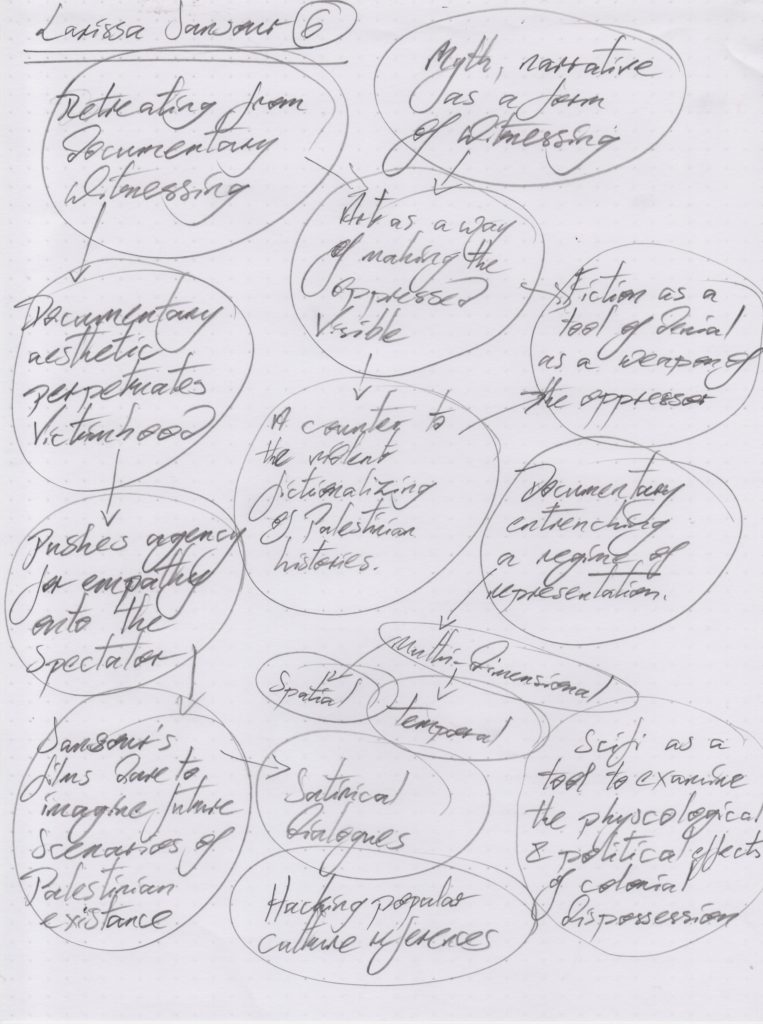 Larissa Sansour 6
Retreating from
documentary
witnessing
Myth, narrative
as a form
of witnessing
Art as a way
of making the
oppressed
visible
Fiction as a
tool of denial
as a weapon of
the oppressor
Documentary
aesthetic
perpetuates
victimhood
A counter to
the violent
fictionalizing
of Palestinian
histories.
Documentary
entrenching
a regime of
representation.
Pushes agency
for empathy
onto the
Spectator
Multi-dimensional
Spatial
temporal
Sansour's
films dare to
imagine future
scenarios of
Palestinian
existance
Satirical
dialogues
Hacking popular
culture references
Scifi as a
tool to examine
the physcological
& political effects
of colonial
dispossession